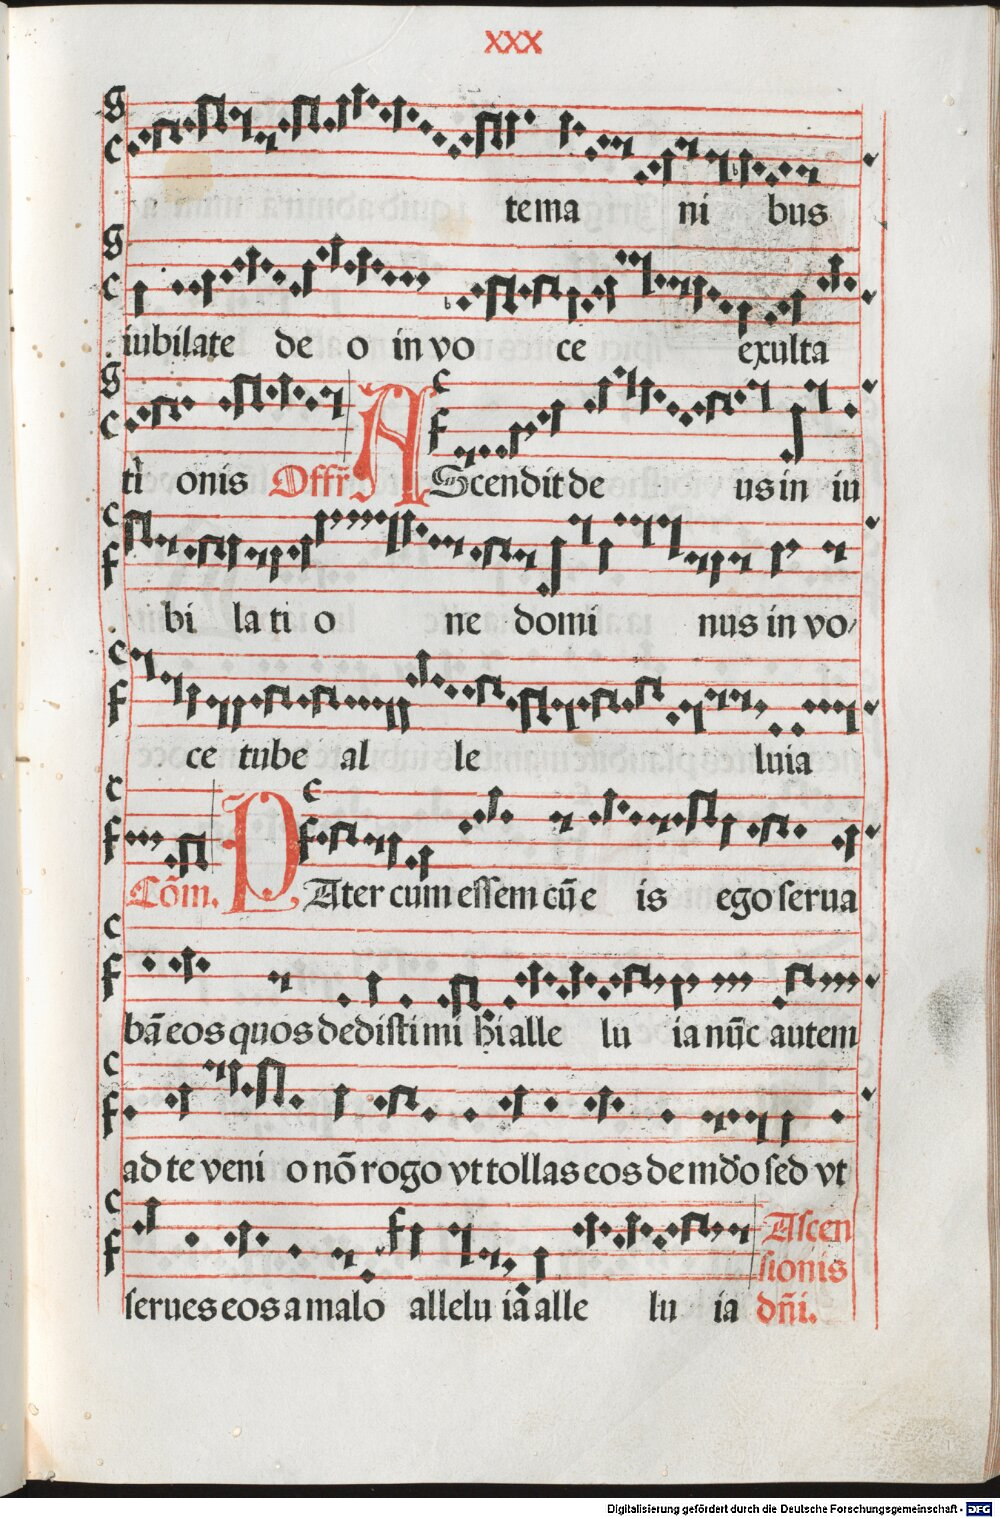 XXX
tema ni bus
iubilate de o in vo ce exulta
ti onis Offr̄ AScendit de us in iu
bi la ti o ne domi nus in vo
ce tube al le luia
Cōm. PAter cum essem cū e is ego serua
bā eos quos dedisti mi hi alle lu ia nūc autem
ad te veni o nō rogo vt tollas eos de mūdo sed vt
serues eos a malo allelu ia alle lu ia Ascen
sionis
dn̄i.
Digitalisierung gefördert durch die Deutsche Forschungsgemeinschaft - DFG